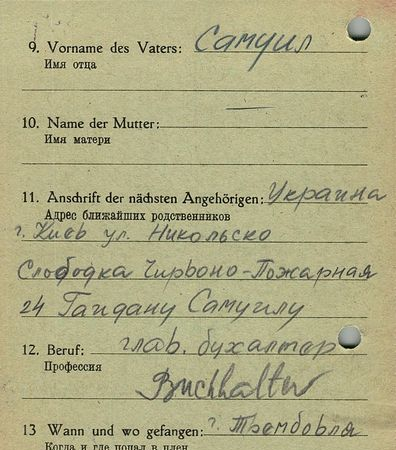 9. Vorname des Vaters: Самуил
Имя отца
10. Name der Mutter:
Имя матери
11. Anschrift der nächsten Angehörigen: Украина
Адрес ближайших родственников
г. Киев ул. Никольско
Слободка Чирвоно-Пожарная
24 Гайдану Самуилу
12. Beruf: глав. бухалтер
Профессия
Buchhalter
13 Wann und wo gefangen: г. Трембовля
Когда и где попал в плен